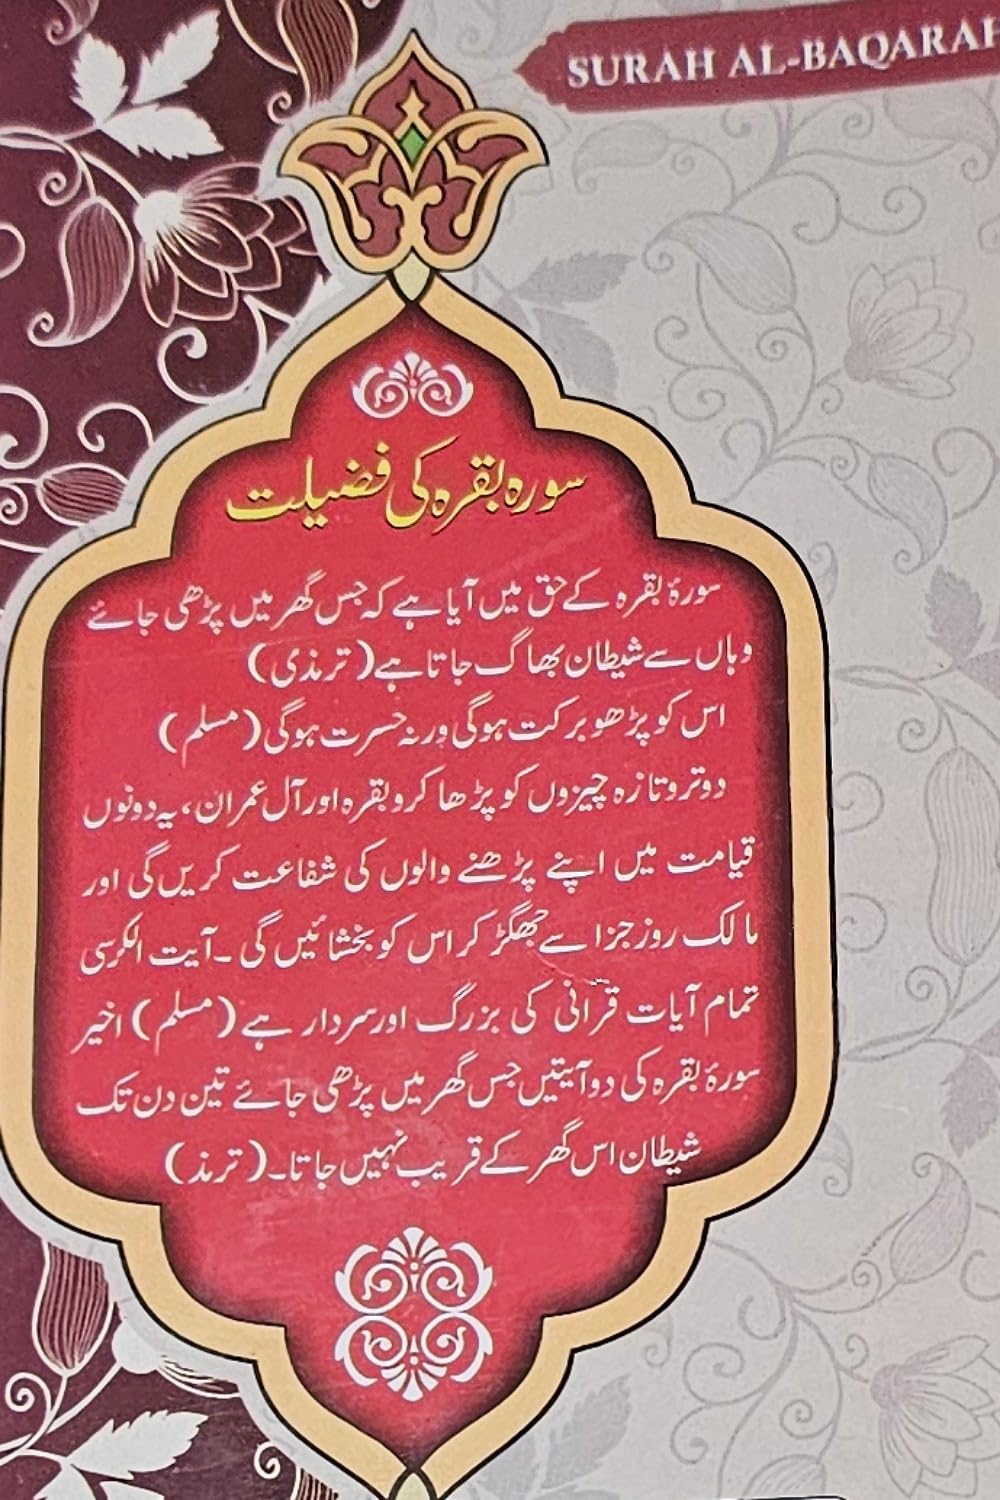 SURAH AL-BAQARAH
سورہ بقرہ کی فضیلت
سورۂ بقرہ کے حق میں آیا ہے کہ جس گھر میں پڑھی جائے
وہاں سے شیطان بھاگ جاتا ہے (ترمذی)
اس کو پڑھو برکت ہوگی ورنہ حسرت ہوگی (مسلم)
دو تروتازہ چیزوں کو پڑھا کرو بقرہ اور آل عمران، یہ دونوں
قیامت میں اپنے پڑھنے والوں کی شفاعت کریں گی اور
مالک روز جزا سے جھگڑ کر اس کو بخشائیں گی ۔ آیت الکرسی
تمام آیات قرآنی کی بزرگ اور سردار ہے (مسلم) اخیر
سورۂ بقرہ کی دو آیتیں جس گھر میں پڑھی جائے تین دن تک
شیطان اس گھر کے قریب نہیں جاتا۔ (ترمذ)